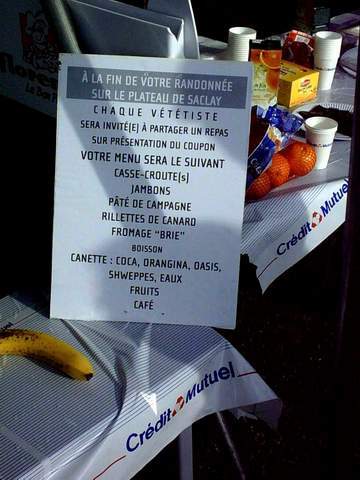 À LA FIN DE VOTRE RANDONNÉE
SUR LE PLATEAU DE SACLAY
CHAQUE VÉTÉTISTE
SERA INVITÉ(E) À PARTAGER UN REPAS
SUR PRÉSENTATION DU COUPON
VOTRE MENU SERA LE SUIVANT
CASSE-CROUTE(s)
JAMBONS
PÂTÉ DE CAMPAGNE
RILLETTES DE CANARD
FROMAGE "BRIE"
BOISSON
CANETTE : COCA, ORANGINA, OASIS,
SHWEPPES, EAUX
FRUITS
CAFÉ
Crédit Mutuel
Crédit Mutuel